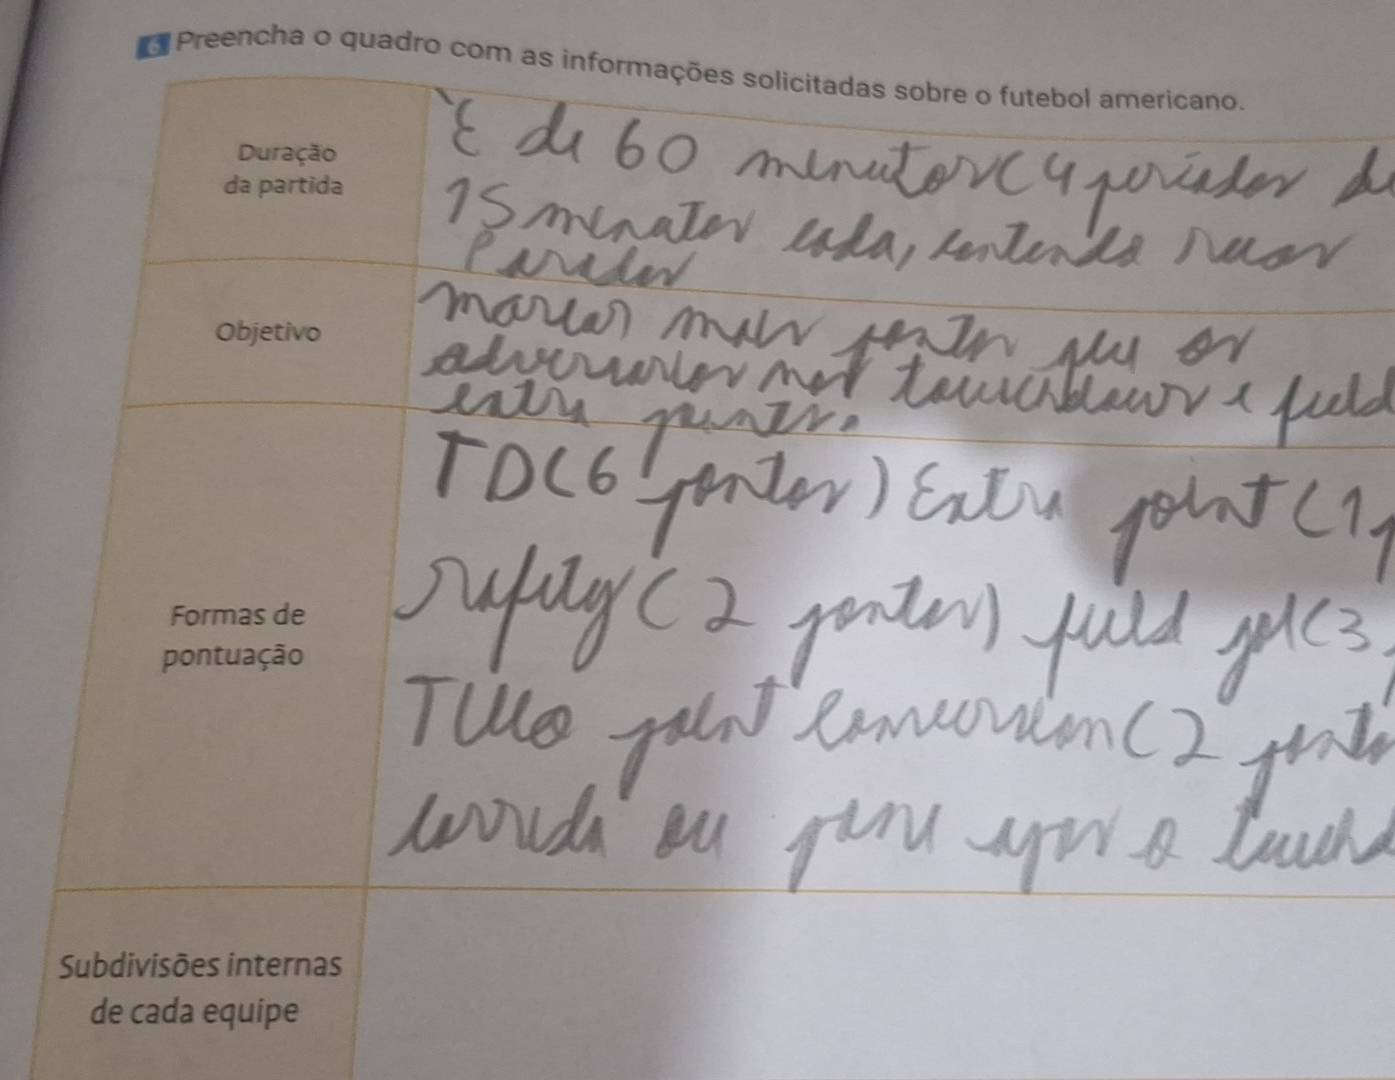 6 Preencha o quadro com as informações solicitadas sobre o futebol americano.
Duração
da partida
É de 60 minutos (4 períodos de
15 minutos cada, contendo
Objetivo
marcar mais pontos que os
adversários touchdowns e field
extra points.
Formas de
pontuação
TD (6 pontos) Extra point (1 p
safety (2 pontos) field gol (3
Two point conversion (2 ponto
corrida ou passe após o touchd
Subdivisões internas
de cada equipe